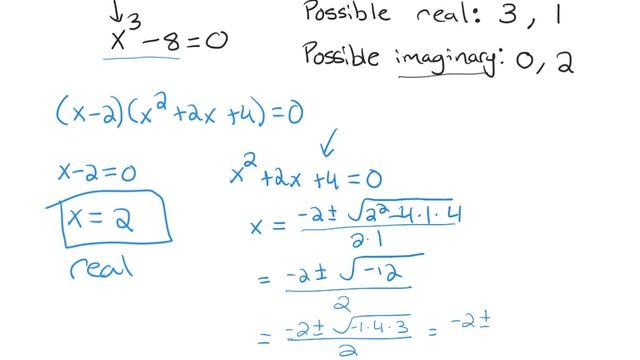 x³ - 8 = 0
Possible real: 3, 1
Possible imaginary: 0, 2
(x-2)(x² + 2x + 4) = 0
x - 2 = 0
x = 2
real
x² + 2x + 4 = 0
x = (-2 ± √(2² - 4·1·4)) / (2·1)
= (-2 ± √(-12)) / 2
= (-2 ± √(-1·4·3)) / 2 = -2 ±